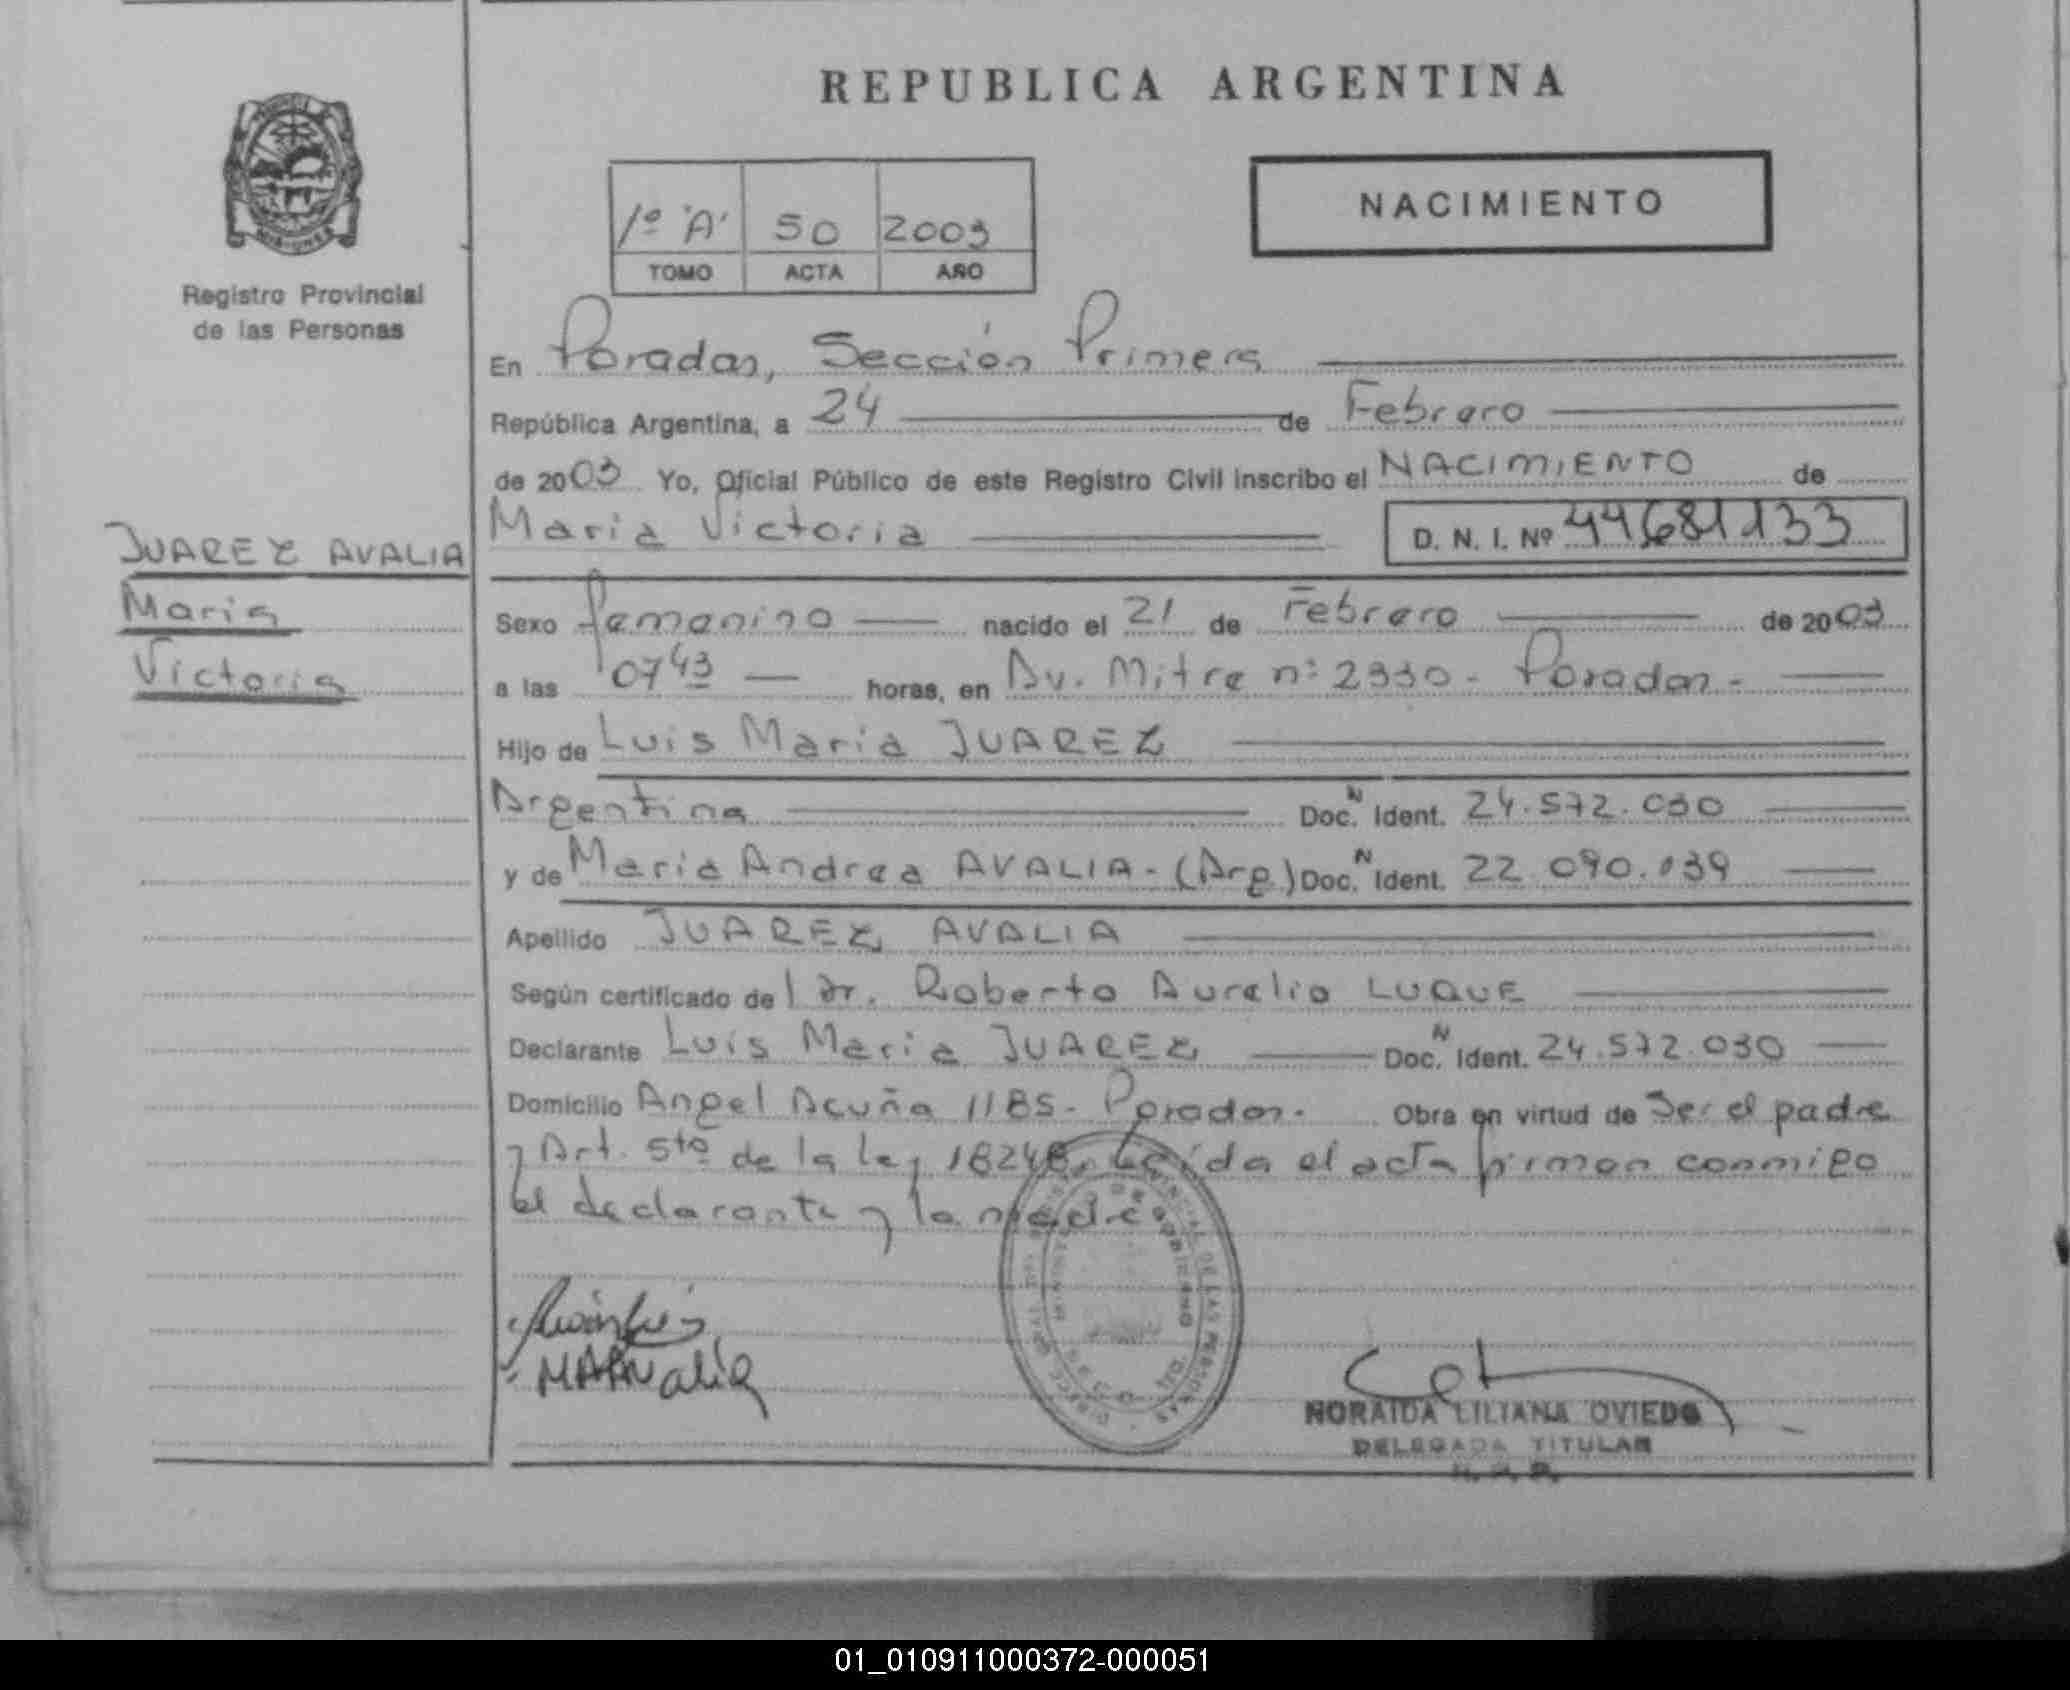 REPUBLICA ARGENTINA
NACIMIENTO
1º "A" 50 2003
TOMO ACTA AÑO
MISIONES
Registro Provincial
de las Personas
En Posadas, Sección Primera
República Argentina, a 24 de Febrero
de 2003 Yo, Oficial Público de este Registro Civil inscribo el NACIMIENTO de
Maria Victoria D. N. I. Nº 44681133
JUAREZ AVALIA
Maria
Victoria
Sexo femenino nacido el 21 de Febrero de 2003
a las 07 43 horas, en Av. Mitre nº 2330 - Posadas -
Hijo de Luis Maria JUAREZ
Argentina Doc. N Ident. 24.572.030
y de Maria Andrea AVALIA - (Arg) Doc. N Ident. 22.090.139
Apellido JUAREZ AVALIA
Según certificado del Dr. Roberto Aurelio LUQUE
Declarante Luis Maria JUAREZ Doc. N Ident. 24.572.030
Domicilio Angel Acuña 1185 - Posadas. Obra en virtud de Ser el padre
y Art. 5to de la ley 18248. Leida el acta firman conmigo
el declarante y la madre.
MAAvalia
NORAIDA LILIANA OVIEDO
DELEGADA TITULAR
01_010911000372-000051